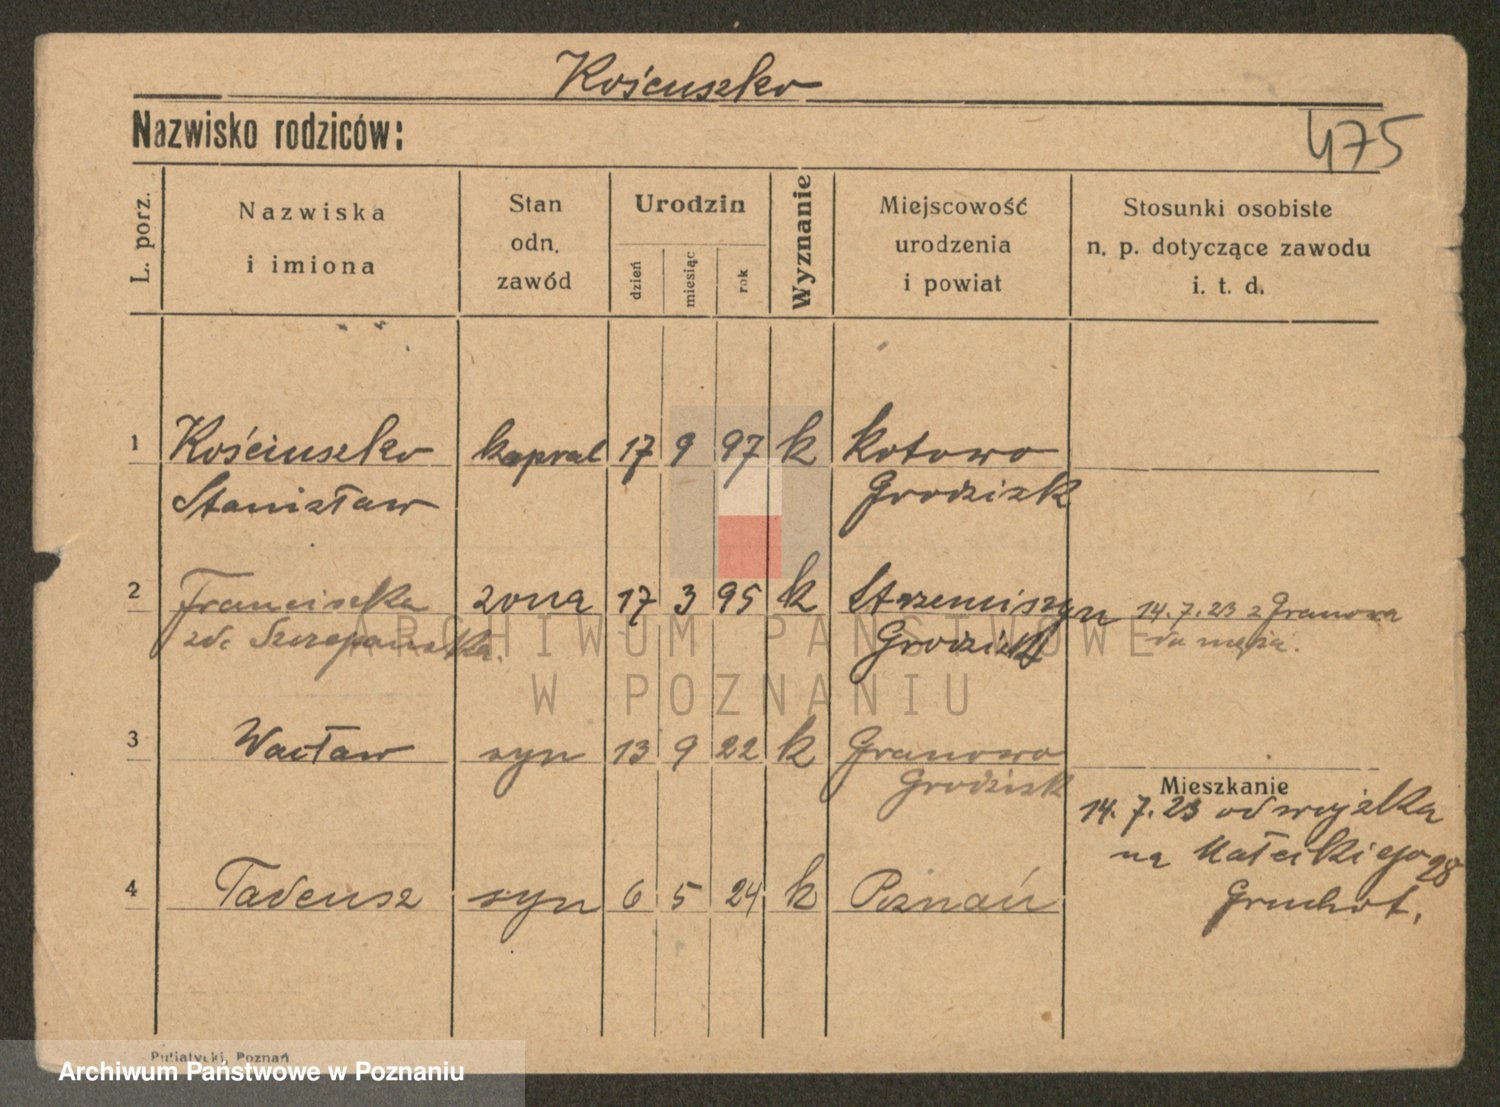 Kościuszko
Nazwisko rodziców:
475
L. porz.
Nazwiska
i imiona
Stan
odn.
zawód
Urodzin
dzień
miesiąc
rok
Wyznanie
Miejscowość
urodzenia
i powiat
Stosunki osobiste
n. p. dotyczące zawodu
i. t. d.
1 Kościuszko kapral 17 9 97 k Kotowo
Stanisław Grodzisk
2 Franciszka żona 17 3 95 k Strzemiszyn 14.7.23 z Granowa
zd. Szczepańska. Grodzisk do męża.
ARCHIWUM PAŃSTWOWE
W POZNANIU
3 Wacław syn 13 9 22 k Granowo
Grodzisk
Mieszkanie
14.7.23 od wojska
na Małeckiego 28
4 Tadeusz syn 6 5 24 k Poznań
Gruchot.
Putiatycki, Poznań
Archiwum Państwowe w Poznaniu